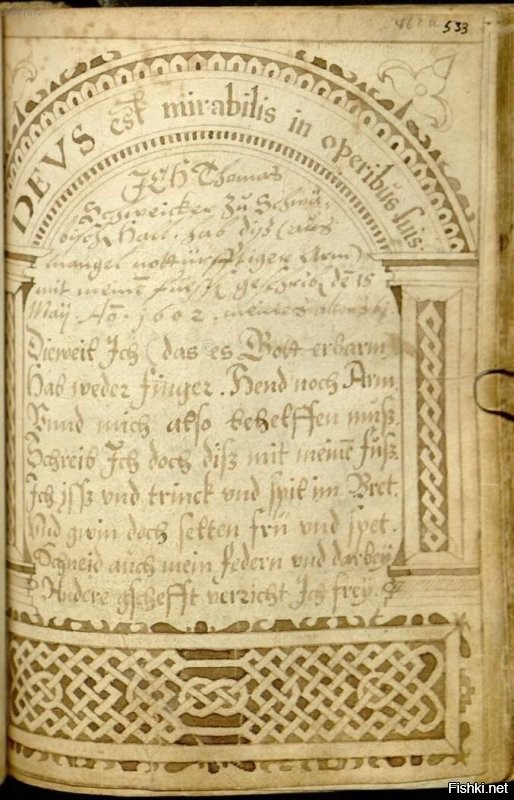 533
DEVS est mirabilis in operibus suis
ICH Thomas
Schweicker Zu Schwä-
bisch Hall, hab diß (aus
mangel notturfftiger Arm)
mit meine füeß geschrib. dē 15
Maij. Aō. 1602. meines alters
Dieweil Ich (das es Gott erbarm)
Hab weder finger, Hend noch Arm,
Vnnd mich also behelffen muß.
Schreib Ich doch diß mit meinē fuß.
Ich jsß vnd trinck vnd spil im Bret.
Vnd gwin doch selten frü vnd spet.
Schneid auch mein federn vnd darbey
Andere gschefft verricht Ich frey.
Fishki.net